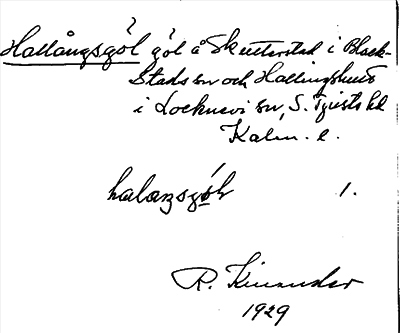 Hallångsgöl göl å Skutterstad i Black-
stads sn och Hallingshult
i Locknevi sn, S. Tjusts hd
Kalm. l.
halaŋsgöl 1.
R. Kinander
1929